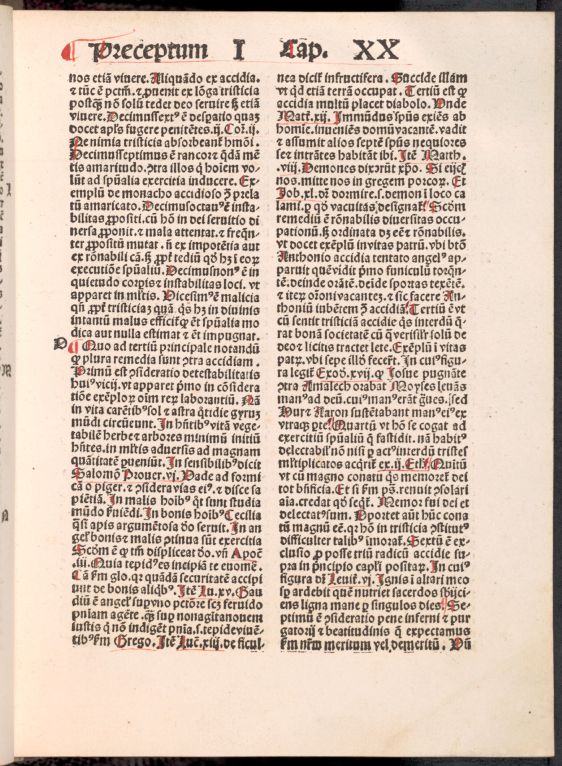 Preceptum I Cap. XX
nos etiã viuere. Aliquãdo ex accidia.
⁊ tũc ẽ pctm̃. ⁊ ꝓuenit ex lõga tristicia
postq̃ nõ solũ tedet deo seruire s̄ etiã
viuere. Decimussext⁹ ẽ despatio quaꝫ
docet apl̃s fugere penitẽtes. ij. Coꝝ. ij.
Ne nimia tristicia absorbeant̃ hmõi.
Decimusseptimus ẽ rancoꝛ q̃dã mẽ
tis amaritudo. ꝯtra illos q̃ hoĩem vo-
lũt ad sp̃ualia exercitia inducere. Ex-
emplũ de monacho accidioso ⁊ prela
tũ amaricato. Decimusoctau⁹ ẽ insta-
bilitas ꝓpositi. cũ hõ in dei seruitio di
uersa ꝓponit. ⁊ mala attentat. ⁊ freq̃n-
ter ꝓpositũ mutat. ñ ex impotẽtia aut
ex rõnabili cã. s̄ ꝓpt̃ tediũ qđ hꝫ ĩ eoꝝ
executiõe sp̃ualiũ. Decimusnon⁹ ẽ in
quietudo corpis ⁊ instabilitas loci. vt
apparet in ml̃tis. Vicesim⁹ ẽ malicia
qñ ꝓpt̃ tristiciaꝫ quã q̃s hꝫ in diuinis
intantũ malus efficit̃ q̃ et sp̃ualia mo
dica aut nulla estimat ⁊ ẽt impugnat.
D Quo ad tertiũ principale notandũ
ꝙ plura remedia sunt ꝯtra accidiam.
Primũ est ꝯsideratio detestabilitatis
hui⁹ vicij. vt apparet p̃mo in cõsidera
tiõe exẽploꝝ oĩm reꝝ laborantiũ. Nã
in vita carẽtib⁹ sol ⁊ astra q̃tdie gyruꝫ
mũdi circũeunt. In hñtib⁹ vitã vege-
tabilẽ herbe ⁊ arbores minimũ initiũ
hñtes. in ml̃tis aduersis ad magnam
quãtitatẽ pueniũt. In sensibilib⁹ dicit
Salomõ Prouer. vj. Vade ad formi
cã o piger. ⁊ ꝯsidera vias ei⁹. ⁊ disce sa
piẽtiã. In malis hoĩb⁹ q̃t sunt studia
mũdo s̃uiẽdi. In bonis hoĩb⁹ Cecilia
q̃si apis argumẽtosa dõ seruit. In an
gel̃ bonis ⁊ malis ꝯtinua sũt exercitia
Scďm ẽ ꝙ tm̃ displiceat dõ. vñ Apoc̃
.iij. Quia tepid⁹ es incipiã te euomẽ.
Cã s̃m glo. qꝛ quãdã securitatẽ accipi
unt de bonis aliq̃b⁹. Itẽ Lu. xv. Gau
diũ ẽ angel̃ sup vno pctõre scꝫ feruido
pñiam agẽte. q̃ȝ sup nonagĩtanouem
iustis q̃ nõ indigẽt pñia. s. tepide viuẽ-
tib⁹ s̃m Grego. Itẽ Luc̃. xiij. de ficul
nea dicit̃ infructifera. Succide illam
vt qđ etiã terrã occupat. Tertiũ est ꝙ
accidia multũ placet diabolo. Vnde
Matt̃. xij. Immũdus sp̃us exiẽs ab
homĩe. inueniẽs domũ vacantẽ. vadit
⁊ assumit alios septẽ sp̃us nequiores
se ⁊ intrãtes habitãt ibi. Itẽ Matth.
viij. Demones dixerũt xp̃o. Si eijc̃
nos. mitte nos in gregem porcoꝝ. Et
Job. xl. dr̃ dormire. s. demon ĩ loco ca
lami. ꝑ qđ vacuitas designat̃. Scďm
remediũ ẽ rõnabilis diuersitas occu-
pationũ. s̄ ordinata dꝫ eẽ ⁊ rõnabilis.
vt docet exẽplũ invitas patrũ. vbi btõ
Anthonio accidia tentato angel⁹ ap-
paruit quẽ vidit p̃mo funiculũ torq̃n-
tẽ. deinde orãtẽ. deinde sportas texẽtẽ.
⁊ iteꝝ oroni vacantẽ. ⁊ sic facere An-
thoniũ inbẽtem ⁊ accidiã. Tertiũ ẽ vt
cũ sentit tristiciã accidie q̃s interdũ q̃-
rat bonã societatẽ cũ q̃ verisiĩlr̃ solũ de
deo ⁊ licitis tractet letc̃. Exẽplũ ĩ vitas
patꝝ. vbi sepe illõ fecert̃. In cui⁹ figu-
ra legit̃ Exoď. xvij. ꝙ Josue pugnãte
ꝯtra Amalech orabat Moyses leuãs
man⁹ ad deũ. cui⁹ man⁹ erãt g̃ues. sed
Hur ⁊ Aaron sustẽtabant man⁹ ei⁹ ex
vtraqꝫ pte. Quartũ vt hõ se cogat ad
exercitiũ sp̃ualiũ q̃ fastidit. nã habit⁹
delectabil̃ nõ nisi ꝑ act⁹ interdũ tristes
ml̃tiplicatos acq̃rit̃ ex. ij. Eth̃. Quĩtũ
vt cũ magno conatu q̃s memoret̃ dei
tot bñficia. Et si s̃m ps̃. renuit ꝯsolari
aĩa. credat qđ seq̃t̃. Memor fui dei et
delectat⁹ sum. Oportet aũt huc cona
tũ magnũ eẽ. qꝛ hõ in tristicia ꝯstitut⁹
difficulter talib⁹ ĩmorat̃. Sextũ ẽ ex-
clusio ꝓ posse triũ radicũ accidie su-
pra in p̃ncipio cap̃li positaꝝ. In cui⁹
figura dr̃ Leuit̃. vj. Ignis ĩ altari meo
sp̃ ardebit quẽ nutriet sacerdos sbijci-
ens ligna mane ꝑ singulos dies. Se-
ptimũ ẽ ꝯsideratio pene inferni ⁊ pur
gatorij ⁊ beatitudinis q̃ expectamus
s̃m nr̃m meritum vel demeritũ. Vñ